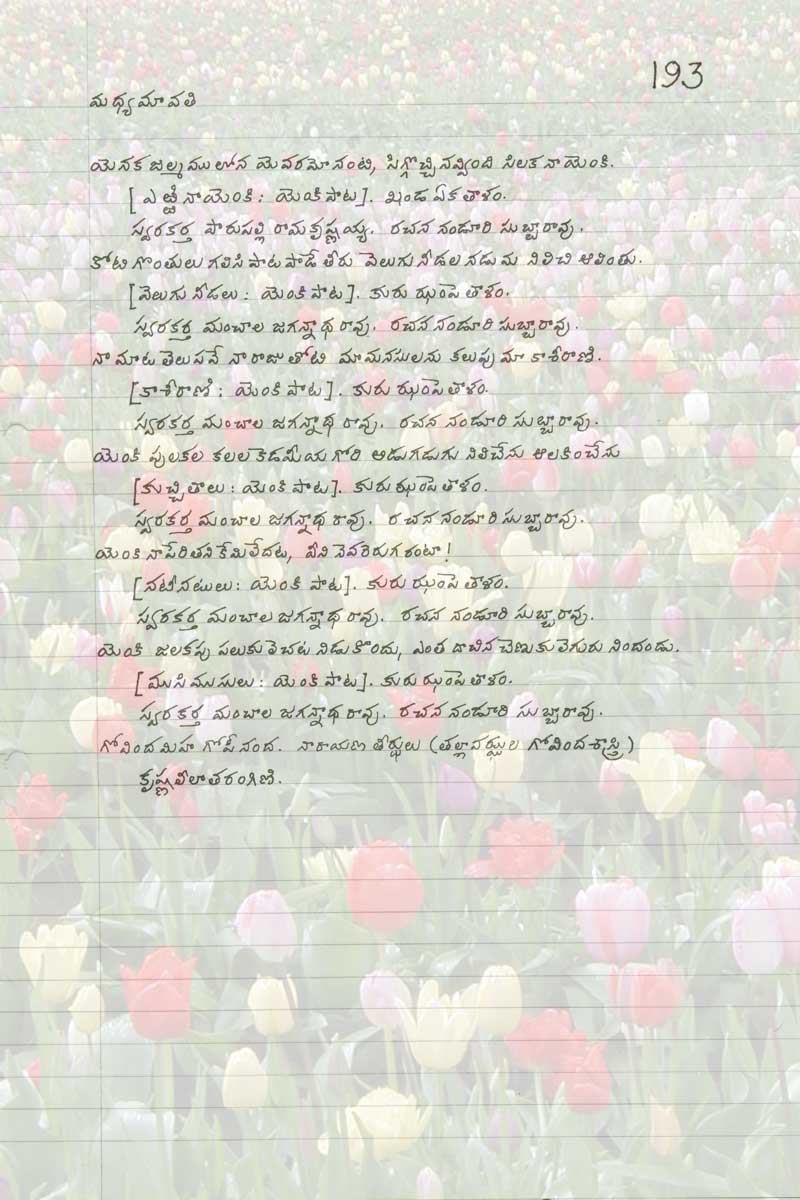 193
మధ్యమావతి
యెనక జల్మములోన యెవరమోనంటి, సిగ్గొచ్చి నవ్వింది సిలక నా యెంకి.
[ఎఱ్ఱి నా యెంకి : యెంకి పాట]. ఖండ ఏక తాళం.
స్వరకర్త పారుపల్లి రామకృష్ణయ్య. రచన నండూరి సుబ్బారావు.
కోటి గొంతులు గలిసి పాట పాడే తీరు వెలుగు నీడల నడుమ నిలిచి ఆలింతు.
[వెలుగు నీడలు : యెంకి పాట]. కురు ఝంపె తాళం.
స్వరకర్త మంచాల జగన్నాథ రావు. రచన నండూరి సుబ్బారావు.
నా మాట తెలుపవే నా రాజు తోటి మా మనసులను కలుపు మా కాశీరాణి.
[కాశీరాణి : యెంకి పాట]. కురు ఝంపె తాళం.
స్వరకర్త మంచాల జగన్నాథ రావు. రచన నండూరి సుబ్బారావు.
యెంకి పులకల కలల కెడమీయ గోరి అడుగడుగు నిలిచేను ఆలకించేను
[కుచ్చితాలు : యెంకి పాట]. కురు ఝంపె తాళం.
స్వరకర్త మంచాల జగన్నాథ రావు. రచన నండూరి సుబ్బారావు.
యెంకి నా పేరితని కేమిలేదట, వీని నెవరెరుగరంటా!
[నటీనటులు : యెంకి పాట]. కురు ఝంపె తాళం.
స్వరకర్త మంచాల జగన్నాథ రావు. రచన నండూరి సుబ్బారావు.
యెంకి జలకపు పలుకు లెచట నిడుకొందు, ఎంత దాచిన చెణుకు లెగురు నిందండు.
[ముసిముసులు : యెంకి పాట]. కురు ఝంపె తాళం.
స్వరకర్త మంచాల జగన్నాథ రావు. రచన నండూరి సుబ్బారావు.
గోవింద మిహ గోపీనంద. నారాయణ తీర్థులు (తల్లావఝ్ఝుల గోవింద శాస్త్రి)
కృష్ణలీలా తరంగిణి.